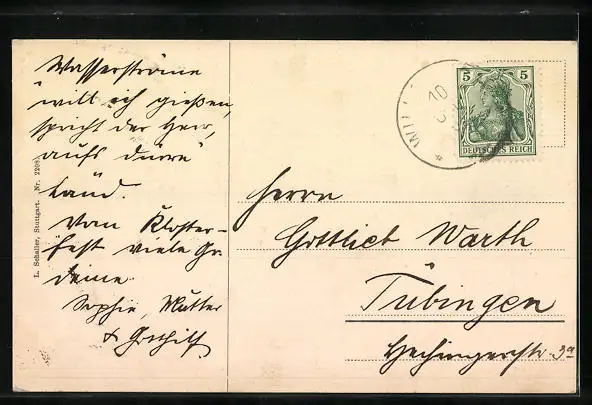 Wasserströme
will ich gießen,
spricht der Herr,
aufs dürre
Land.
Vom Kloster-
fest viele Gr.
deine
Sophie, Mutter
& Gotthilf
L. Schaller, Stuttgart. (Nr. 2208)
10
5 5
DEUTSCHES REICH
Herrn
Gottlieb Warth
Tübingen
Hechingerstr. 9a